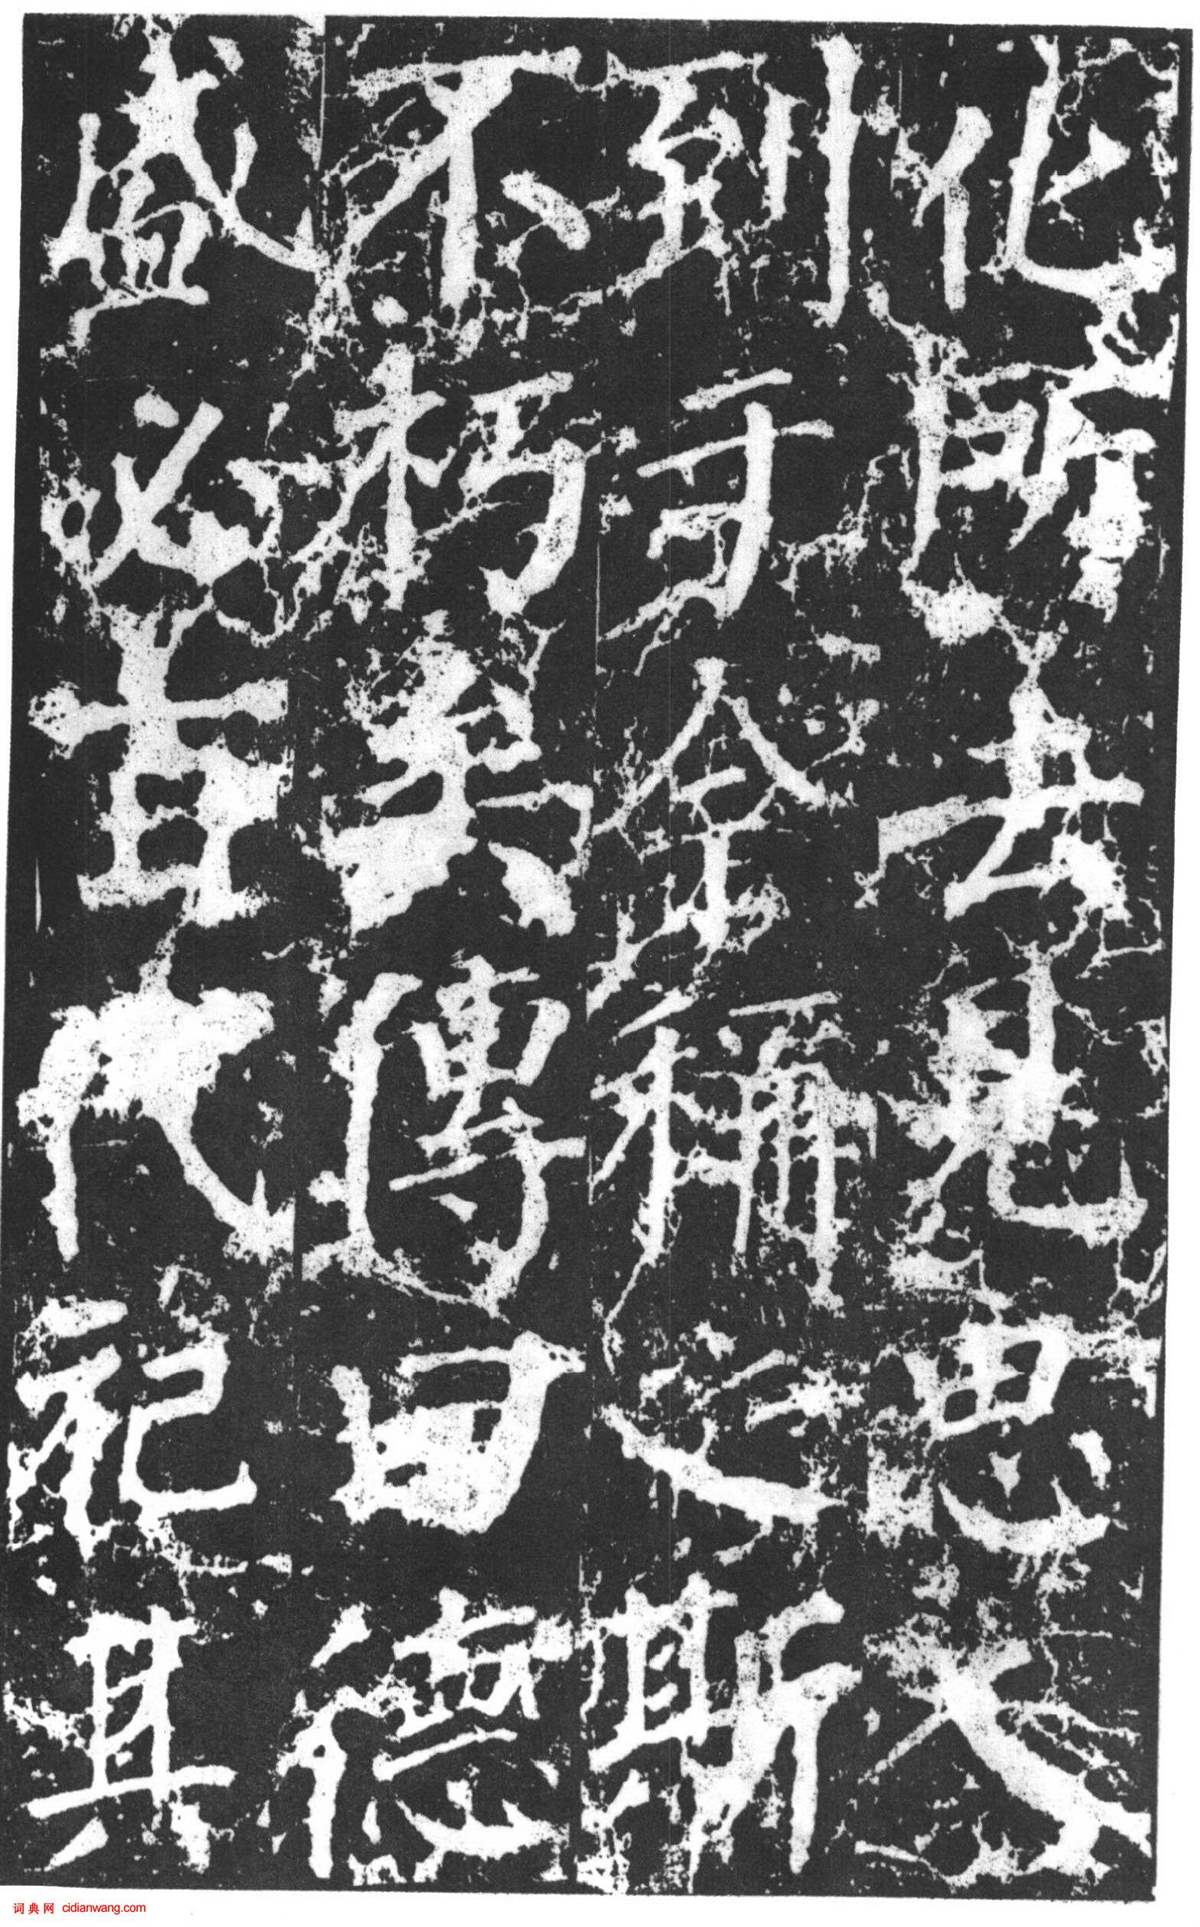 化所去見思人
到于今稱之斯
不朽矣傳曰德
盛必百代祀其
词典网 cidianwang.com